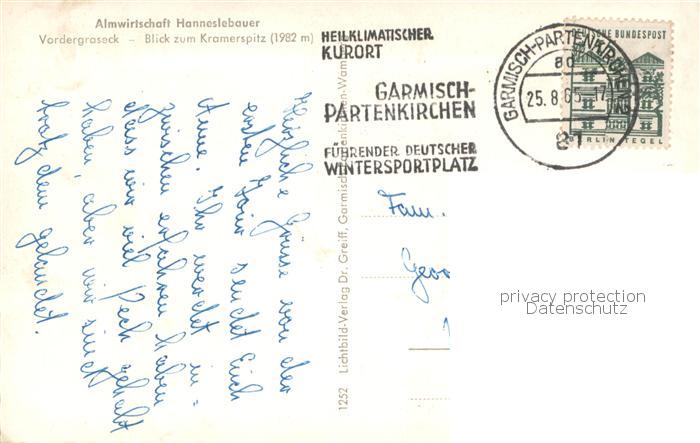 Almwirtschaft Hanneslebauer
Vordergraseck – Blick zum Kramerspitz (1982 m)
HEILKLIMATISCHER
KURORT
GARMISCH-
PARTENKIRCHEN
FÜHRENDER DEUTSCHER
WINTERSPORTPLATZ
GARMISCH-PARTENKIRCHEN
ad
25.8.65-17
81
DEUTSCHE BUNDESPOST
BERLIN TEGEL
Herzliche Grüsse von der
ersten Tour sendet Euch
Anne. Ihr werdet in=
zwischen erfahren haben
dass wir viel Pech gehabt
haben, aber wir sind
trotz dem gelandet.
1252 Lichtbild-Verlag Dr. Greiff, Garmisch-Partenkirchen-Wamb
Fam.
Geor
privacy protection
Datenschutz